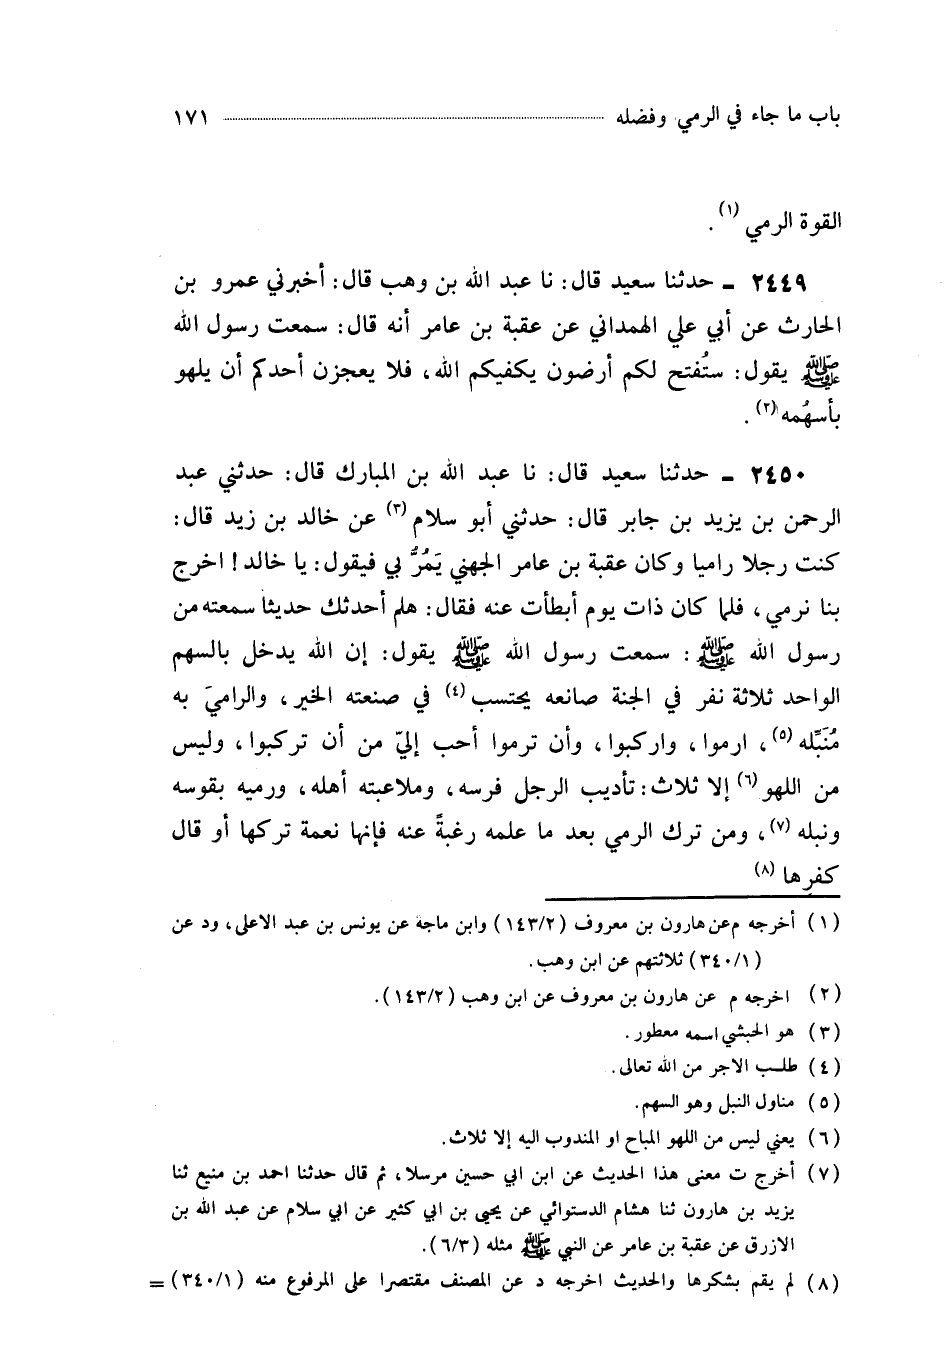 باب ما جاء في الرمي وفضله ........ ١٧١
القوة الرمي (١) .
٢٤٤٩ ـ حدثنا سعيد قال: نا عبد الله بن وهب قال: أخبرني عمرو بن
الحارث عن أبي علي الهمداني عن عقبة بن عامر أنه قال: سمعت رسول الله
ﷺ يقول: ستُفتح لكم أرضون يكفيكم الله، فلا يعجزن أحدكم أن يلهو
بأسهُمه (٢) .
٢٤٥٠ ـ حدثنا سعيد قال: نا عبد الله بن المبارك قال: حدثني عبد
الرحمن بن يزيد بن جابر قال: حدثني أبو سلام (٣) عن خالد بن زيد قال:
كنت رجلا راميا وكان عقبة بن عامر الجهني يَمُرُّ بي فيقول: يا خالد! اخرج
بنا نرمي، فلما كان ذات يوم أبطأت عنه فقال: هلم أحدثك حديثا سمعته من
رسول الله ﷺ : سمعت رسول الله ﷺ يقول: إن الله يدخل بالسهم
الواحد ثلاثة نفر في الجنة صانعه يحتسب (٤) في صنعته الخير، والراميَ به
مُنَبِّله (٥)، ارموا، واركبوا، وأن ترموا أحب إليّ من أن تركبوا، وليس
من اللهو (٦) إلا ثلاث: تأديب الرجل فرسه، وملاعبته أهله، ورميه بقوسه
ونبله (٧)، ومن ترك الرمي بعد ما علمه رغبةً عنه فإنها نعمة تركها أو قال
كفرها (٨)
(١) أخرجه م عن هارون بن معروف (١٤٣/٢) وابن ماجة عن يونس بن عبد الاعلى، ود عن
(٣٤٠/١) ثلاثتهم عن ابن وهب.
(٢) اخرجه م عن هارون بن معروف عن ابن وهب (١٤٣/٢).
(٣) هو الحبشي اسمه معطور.
(٤) طلب الاجر من الله تعالى.
(٥) مناول النبل وهو السهم.
(٦) يعني ليس من اللهو المباح او المندوب اليه إلا ثلاث.
(٧) أخرج ت معنى هذا الحديث عن ابن ابي حسين مرسلا، ثم قال حدثنا احمد بن منيع ثنا
يزيد بن هارون ثنا هشام الدستوائي عن يحيى بن ابي كثير عن ابي سلام عن عبد الله بن
الازرق عن عقبة بن عامر عن النبي ﷺ مثله (٦/٣).
(٨) لم يقم بشكرها والحديث اخرجه د عن المصنف مقتصرا على المرفوع منه (٣٤٠/١) =